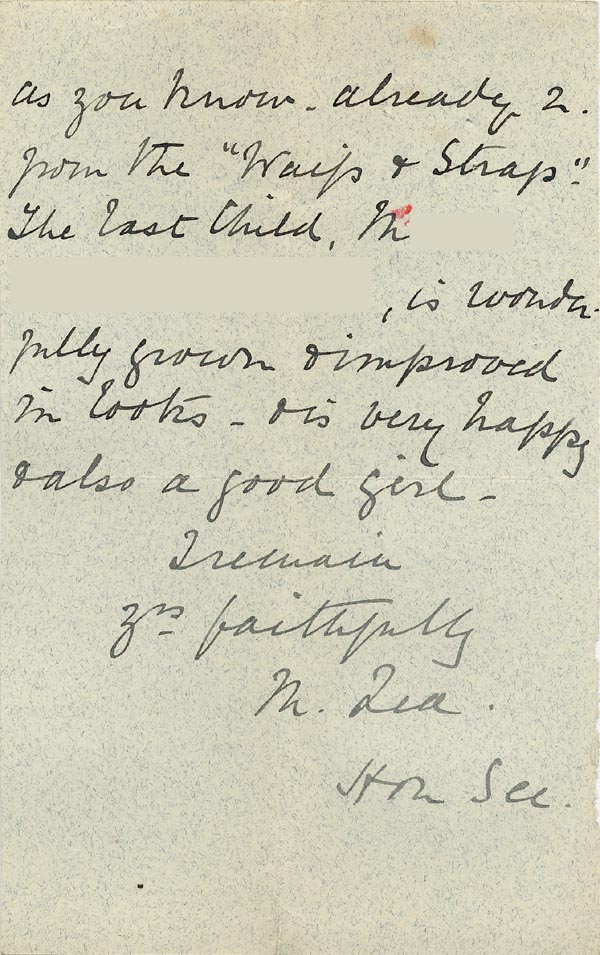 as you know - already 2.
from the "Waifs & Strays".
The last Child, M
, is wonder-
fully grown & improved
in looks - & is very happy
& also a good girl -
I remain
yrs faithfully
M.
Hon Sec.